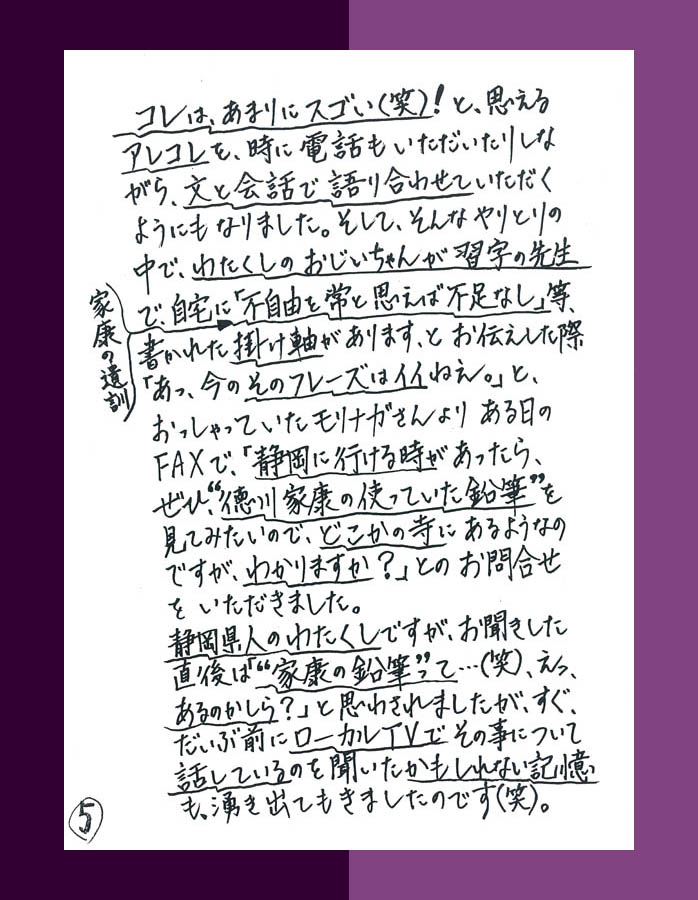 コレは、あまりにスゴい(笑)!と、思える
アレコレを、時に電話もいただいたりしな
がら、文と会話で語り合わせていただく
ようにもなりました。そして、そんなやりとりの
中で、わたくしのおじいちゃんが習字の先生
で、自宅に「不自由を常と思えば不足なし」等、
家康の遺訓
書かれた掛け軸があります、とお伝えした際
「あっ、今のそのフレーズはイイねえ。」と、
おっしゃっていたモリナガさんより ある日の
FAXで、「静岡に行ける時があったら、
ぜひ、“徳川家康の使っていた鉛筆”を
見てみたいので、どこかの寺にあるようなの
ですが、わかりますか?」とのお問合せ
をいただきました。
静岡県人のわたくしですが、お聞きした
直後は「“家康の鉛筆”って…(笑)、えっ、
あるのかしら?」と思わされましたが、すぐ、
だいぶ前にローカルTVでその事について
話しているのを聞いたかもしれない記憶
も、湧き出てもきましたのです(笑)。
5